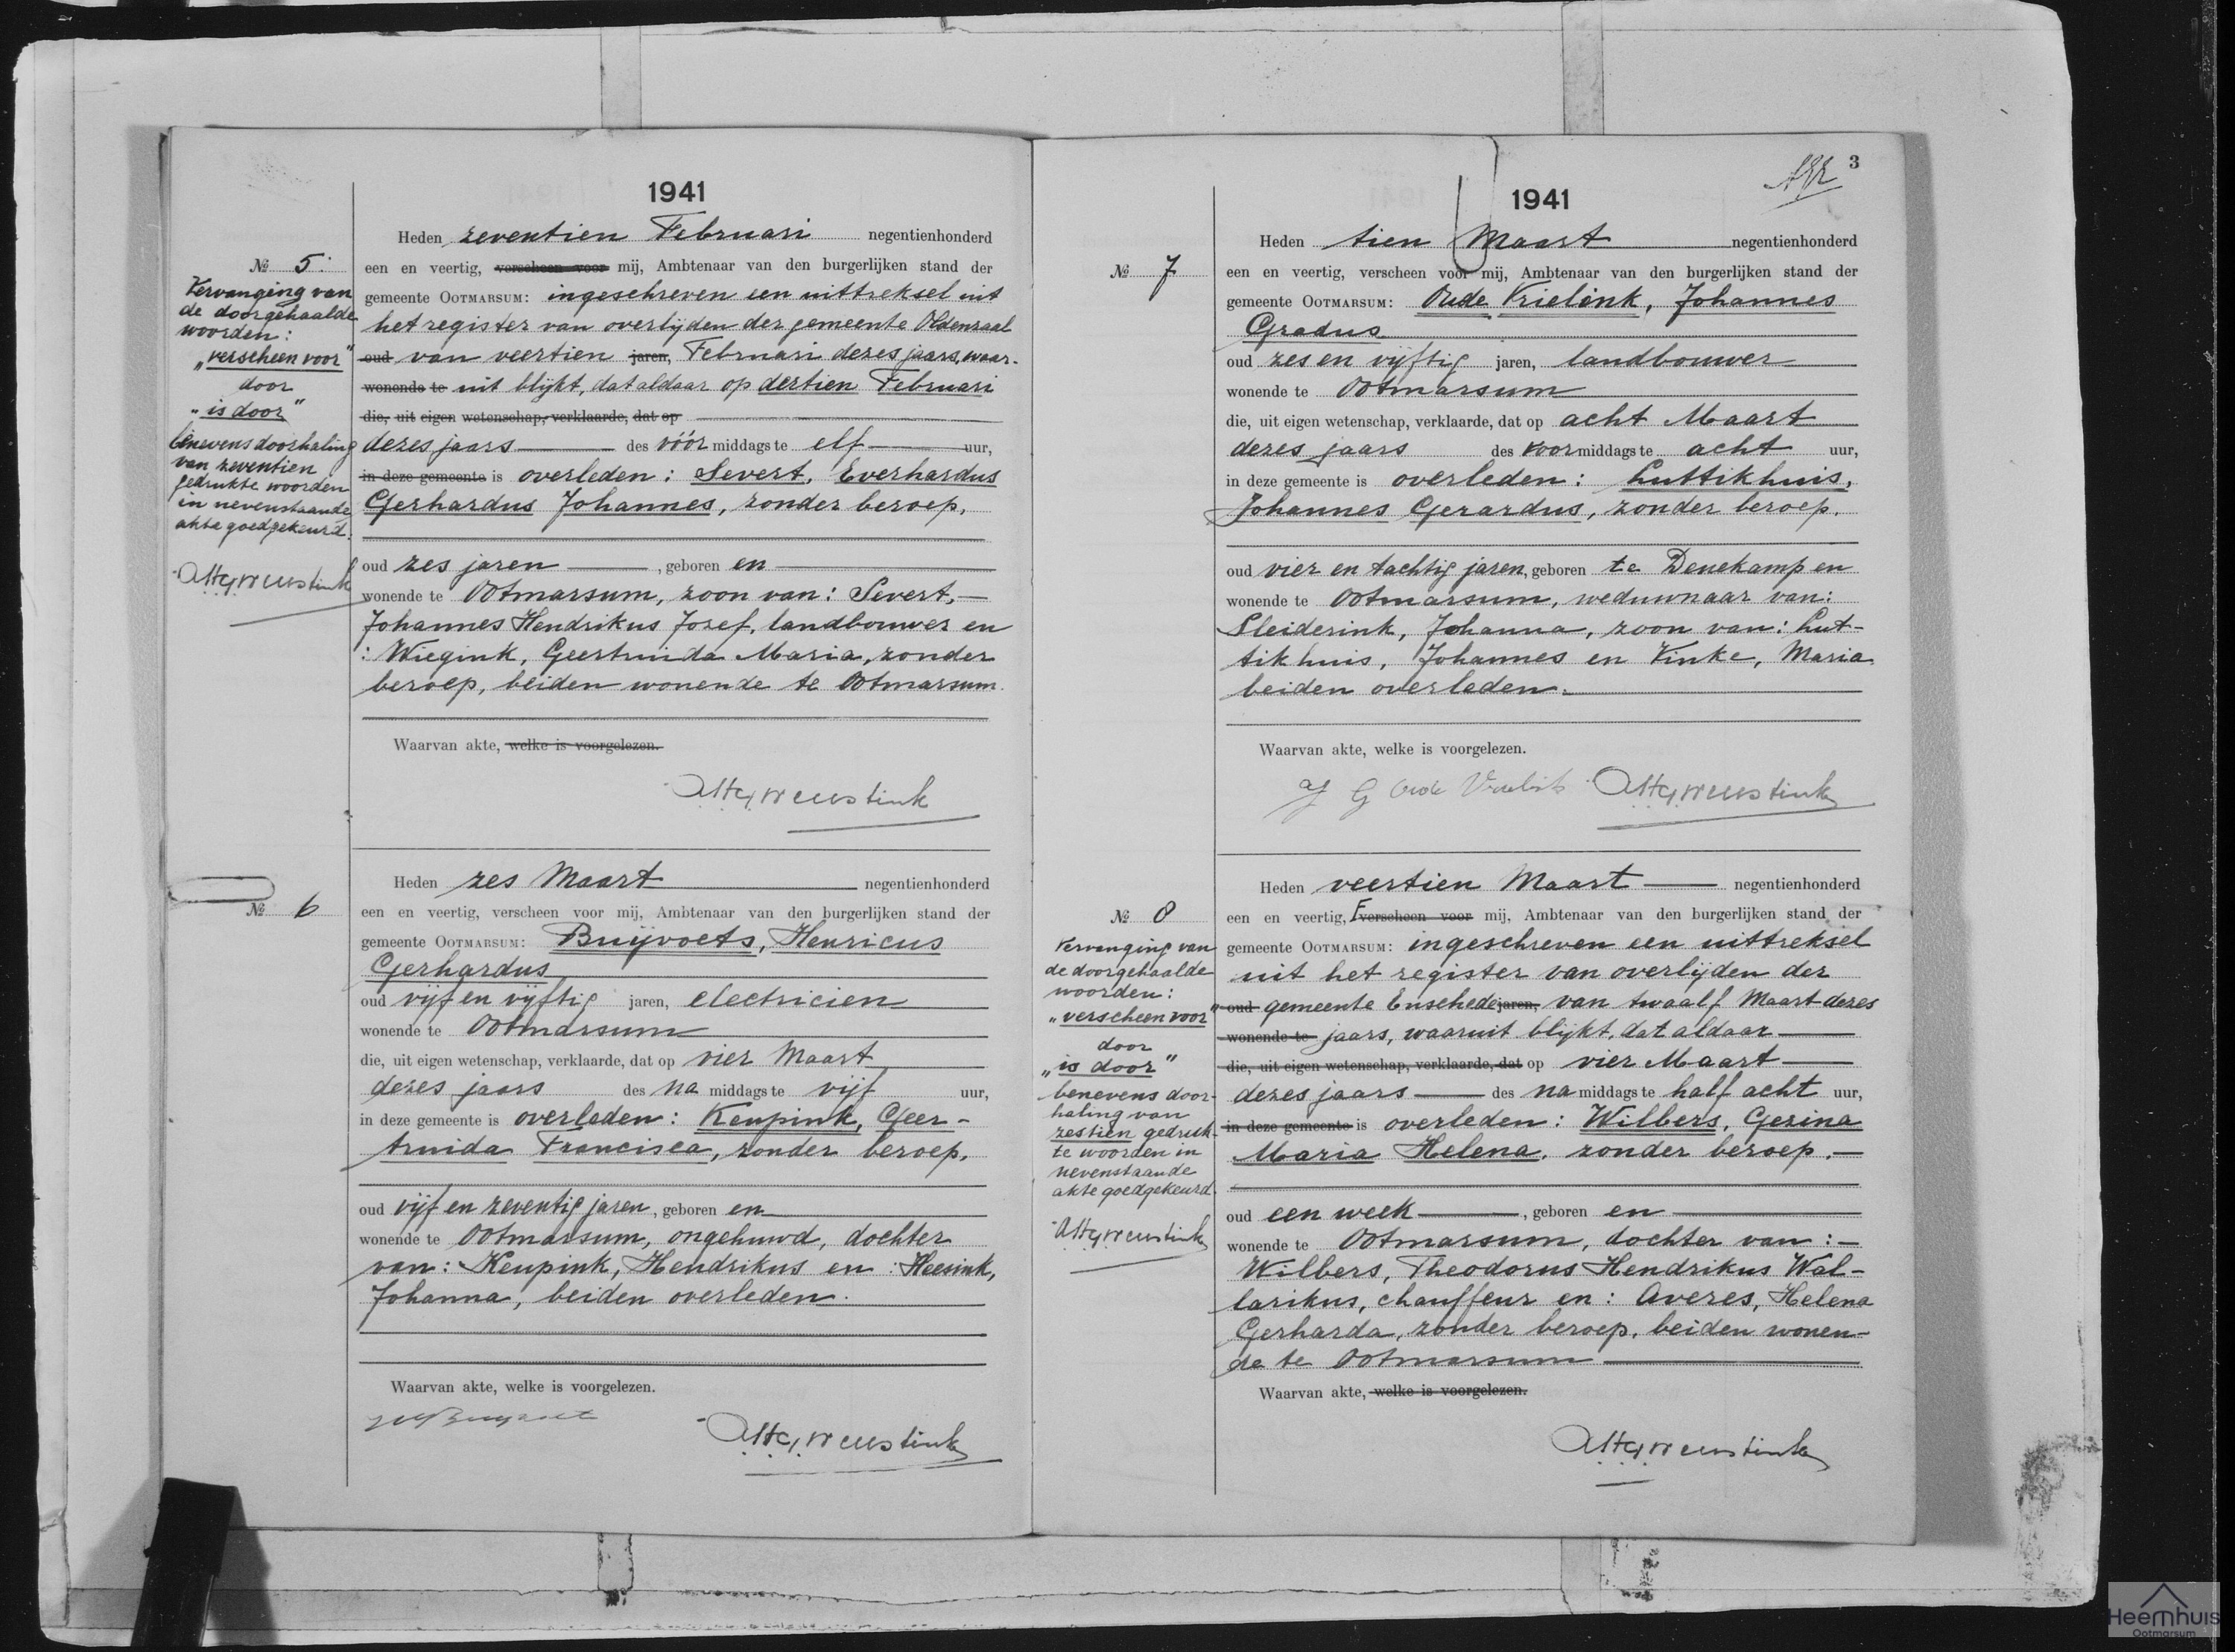 1941
Heden zeventien Februari negentienhonderd
№ 5.
een en veertig, verscheen voor mij, Ambtenaar van den burgerlijken stand der
gemeente OOTMARSUM: ingeschreven een uittreksel uit
het register van overlijden der gemeente Oldenzaal
oud van veertien jaren, Februari dezes jaars, waar-
wonende te uit blijkt, dat aldaar op dertien Februari
die, uit eigen wetenschap, verklaarde, dat op
dezes jaars des vóór middags te elf uur,
in deze gemeente is overleden: Severt, Everhardus
Gerhardus Johannes, zonder beroep,
oud zes jaren, geboren en
wonende te Ootmarsum, zoon van: Severt,
Johannes Hendrikus Jozef, landbouwer en
: Wiegink, Geertruida Maria, zonder
beroep, beiden wonende te Ootmarsum.
Waarvan akte, welke is voorgelezen.
Vervanging van
de doorgehaalde
woorden:
„verscheen voor"
door
„is door"
benevens doorhaling
van zeventien
gedrukte woorden
in nevenstaande
akte goedgekeurd.
Heden zes Maart negentienhonderd
№ 6
een en veertig, verscheen voor mij, Ambtenaar van den burgerlijken stand der
gemeente OOTMARSUM: Buijvoets, Henricus
Gerhardus
oud vijf en vijftig jaren, electricien
wonende te Ootmarsum
die, uit eigen wetenschap, verklaarde, dat op vier Maart
dezes jaars des na middags te vijf uur,
in deze gemeente is overleden: Keupink, Geer-
truida Francisca, zonder beroep,
oud vijf en zeventig jaren, geboren en
wonende te Ootmarsum, ongehuwd, dochter
van: Keupink, Hendrikus en: Heesink,
Johanna, beiden overleden.
Waarvan akte, welke is voorgelezen.
3
1941
Heden tien Maart negentienhonderd
№ 7
een en veertig, verscheen voor mij, Ambtenaar van den burgerlijken stand der
gemeente OOTMARSUM: Oude Vrielink, Johannes
Gradus
oud zes en vijftig jaren, landbouwer
wonende te Ootmarsum
die, uit eigen wetenschap, verklaarde, dat op acht Maart
dezes jaars des voormiddags te acht uur,
in deze gemeente is overleden: Luttikhuis,
Johannes Gerardus, zonder beroep.
oud vier en tachtig jaren, geboren te Denekamp en
wonende te Ootmarsum, weduwnaar van:
Sleiderink, Johanna, zoon van: Lut-
tikhuis, Johannes en Vinke, Maria
beiden overleden.
Waarvan akte, welke is voorgelezen.
Heden veertien Maart negentienhonderd
№ 8
een en veertig, verscheen voor mij, Ambtenaar van den burgerlijken stand der
gemeente OOTMARSUM: ingeschreven een uittreksel
uit het register van overlijden der
oud gemeente Enschede jaren, van twaalf Maart dezes
wonende te jaars, waaruit blijkt, dat aldaar
die, uit eigen wetenschap, verklaarde, dat op vier Maart
dezes jaars des na middags te half acht uur,
in deze gemeente is overleden: Wilbers, Gezina
Maria Helena, zonder beroep.
oud een week, geboren en
wonende te Ootmarsum, dochter van:
Wilbers, Theodorus Hendrikus Wal-
larikus, chauffeur en: Averes, Helena
Gerharda, zonder beroep, beiden wonen-
de te Ootmarsum
Waarvan akte, welke is voorgelezen.
Vervanging van
de doorgehaalde
woorden:
„verscheen voor"
door
„is door"
benevens door-
haling van
zestien gedruk-
te woorden in
nevenstaande
akte goedgekeurd.
Heemhuis
Ootmarsum